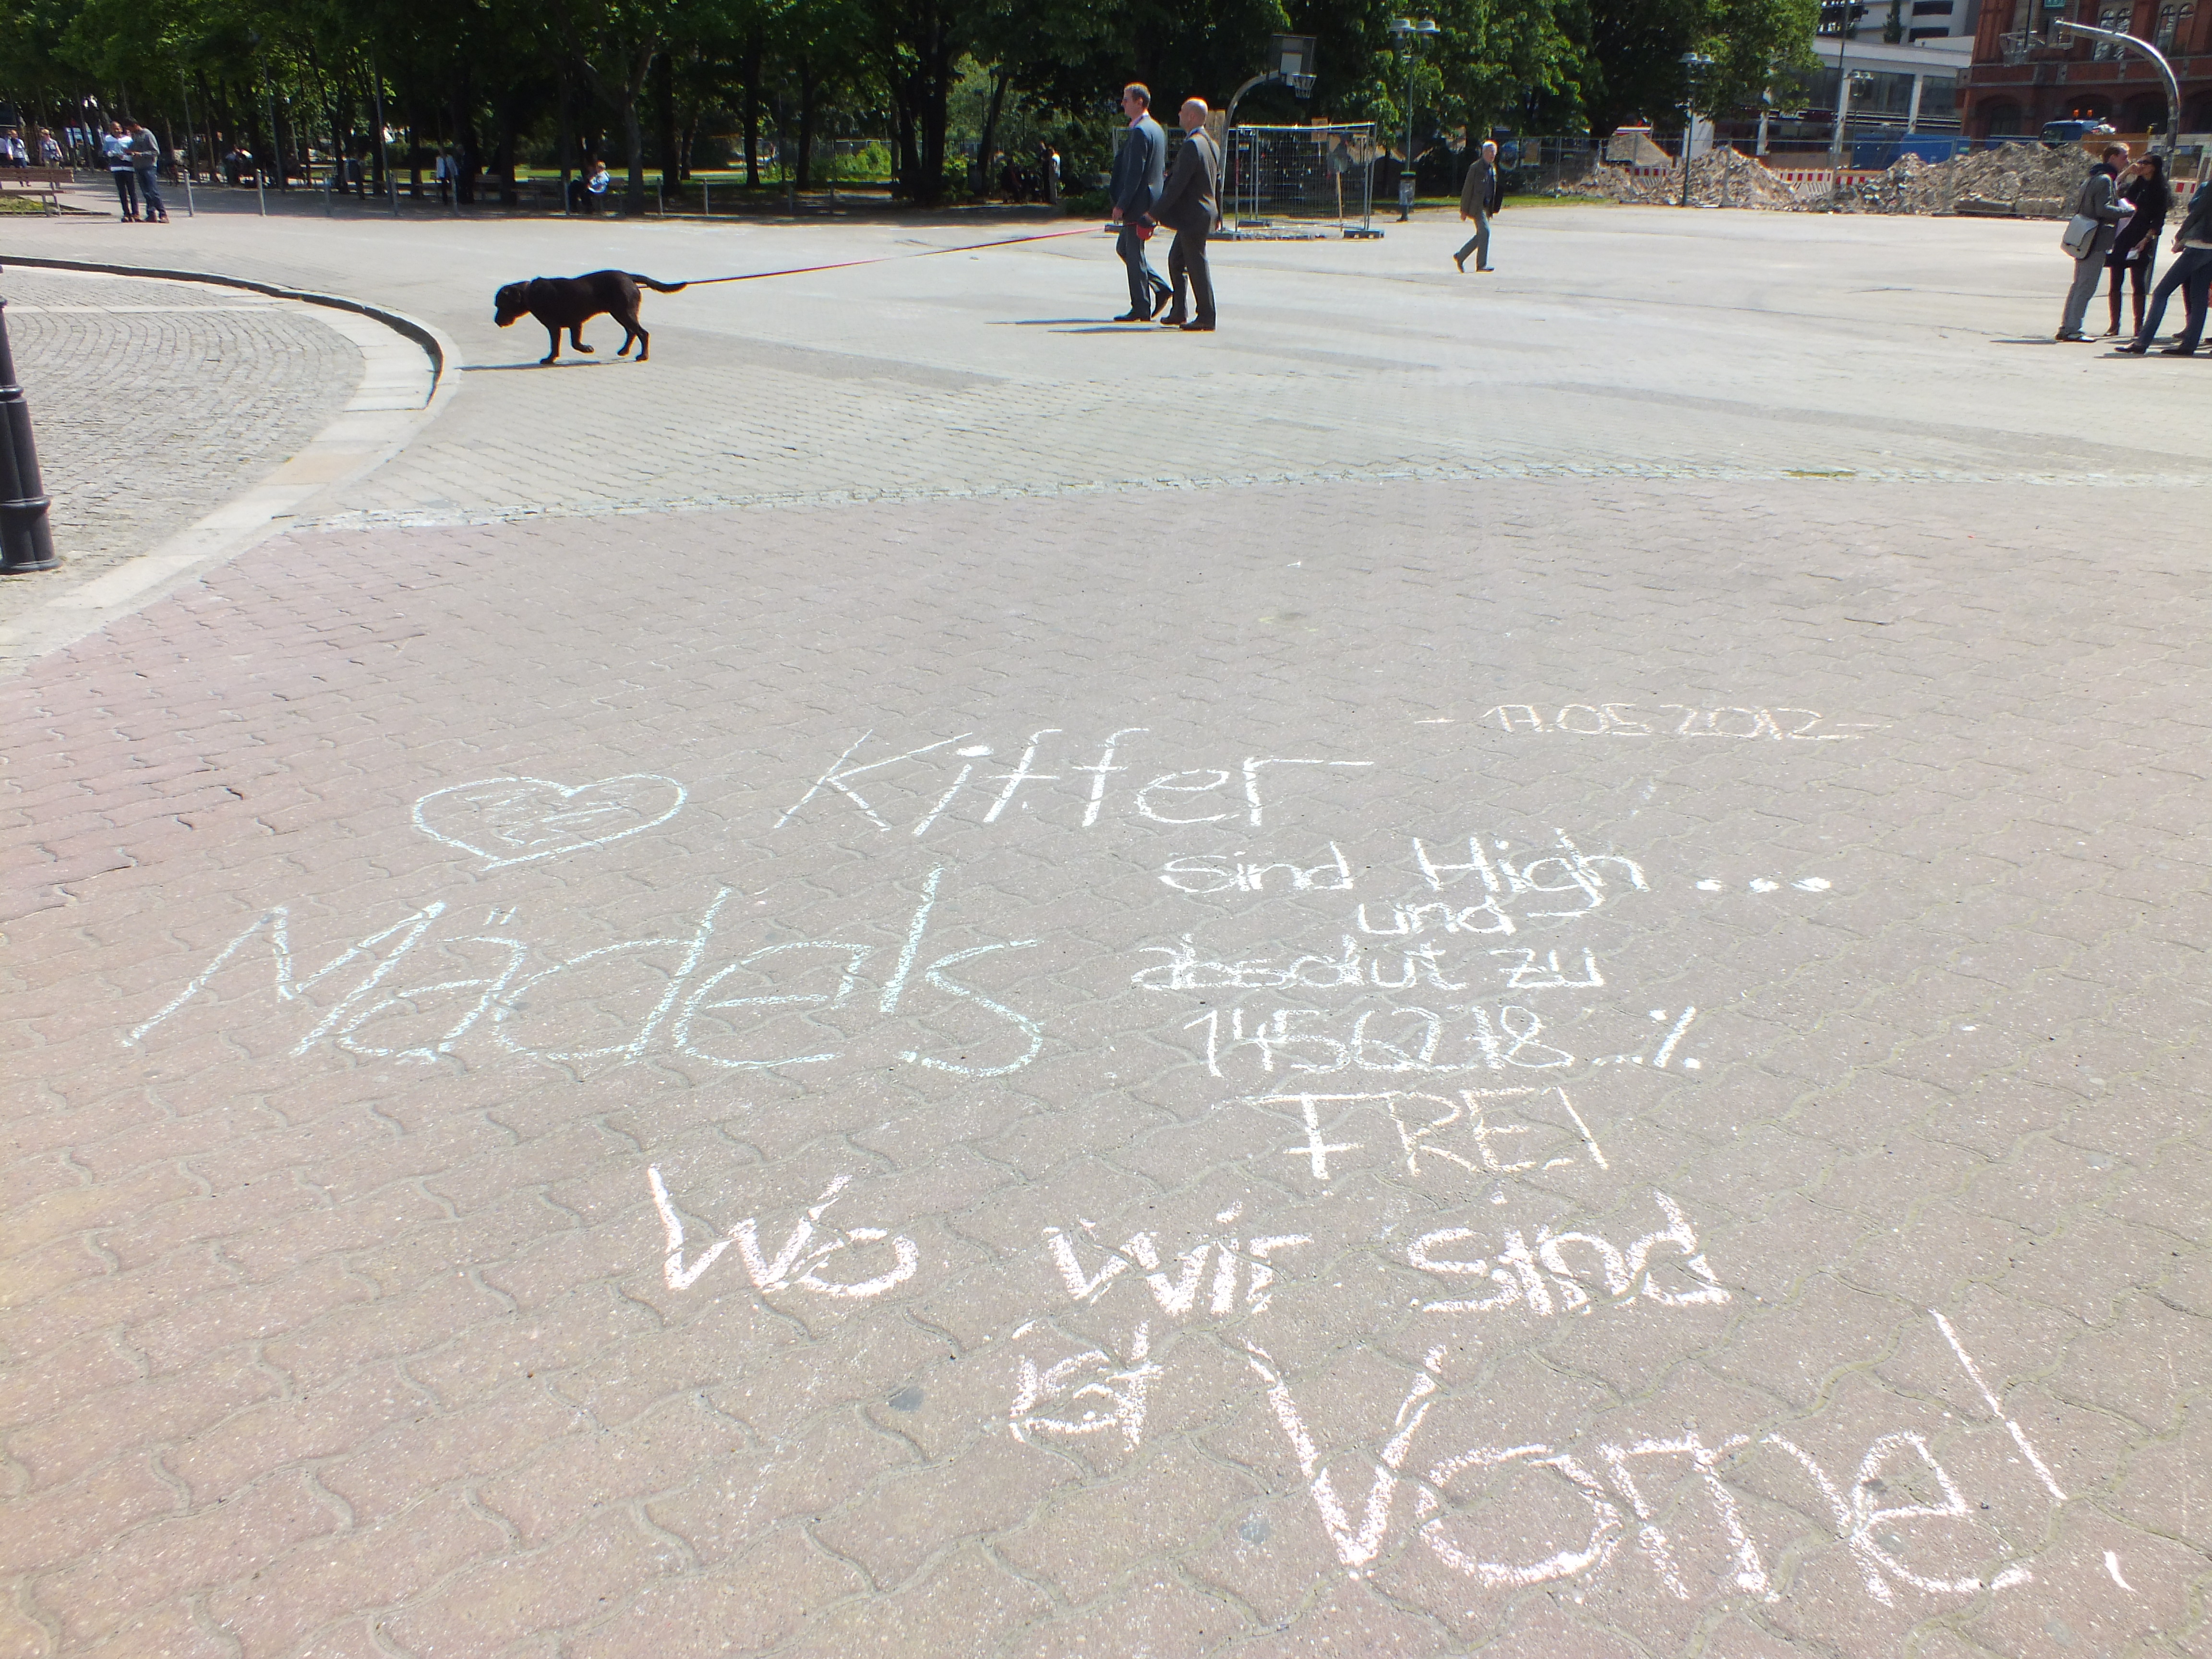 - 17.05.2012 -
Kiffer
Mädels
sind High ...
und
absolut zu
14562718..%
FREI
Wo wir sind
ist Vorne!